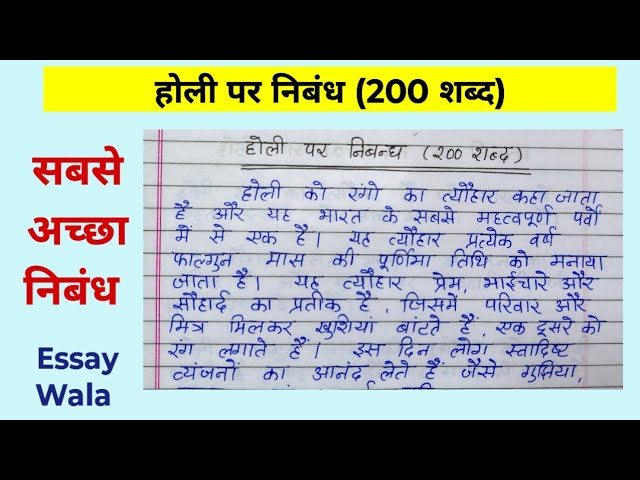 होली पर निबंध (200 शब्द)
सबसे
अच्छा
निबंध
Essay
Wala
होली पर निबन्ध (200 शब्द)
होली को रंगो का त्यौहार कहा जाता
है और यह भारत के सबसे महत्वपूर्ण पर्वों
में से एक है। यह त्यौहार प्रत्येक वर्ष
फाल्गुन मास की पूर्णिमा तिथि को मनाया
जाता है। यह त्यौहार प्रेम, भाईचारे और
सौहार्द का प्रतीक है, जिसमें परिवार और
मित्र मिलकर खुशियां बांटते हैं, एक दूसरे को
रंग लगाते हैं। इस दिन लोग स्वादिष्ट
व्यंजनों का आनंद लेते हैं जैसे गुझिया,